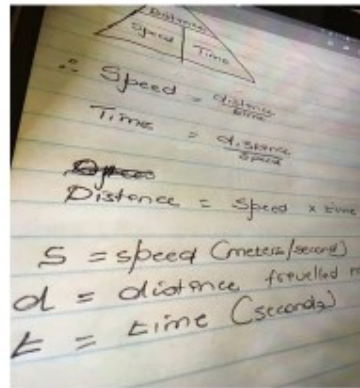 Distance
Speed Time
∴ Speed = distance/time
Time = distance/speed
Distance = speed x time
S = speed (meters/second)
d = distance travelled
t = time (seconds)